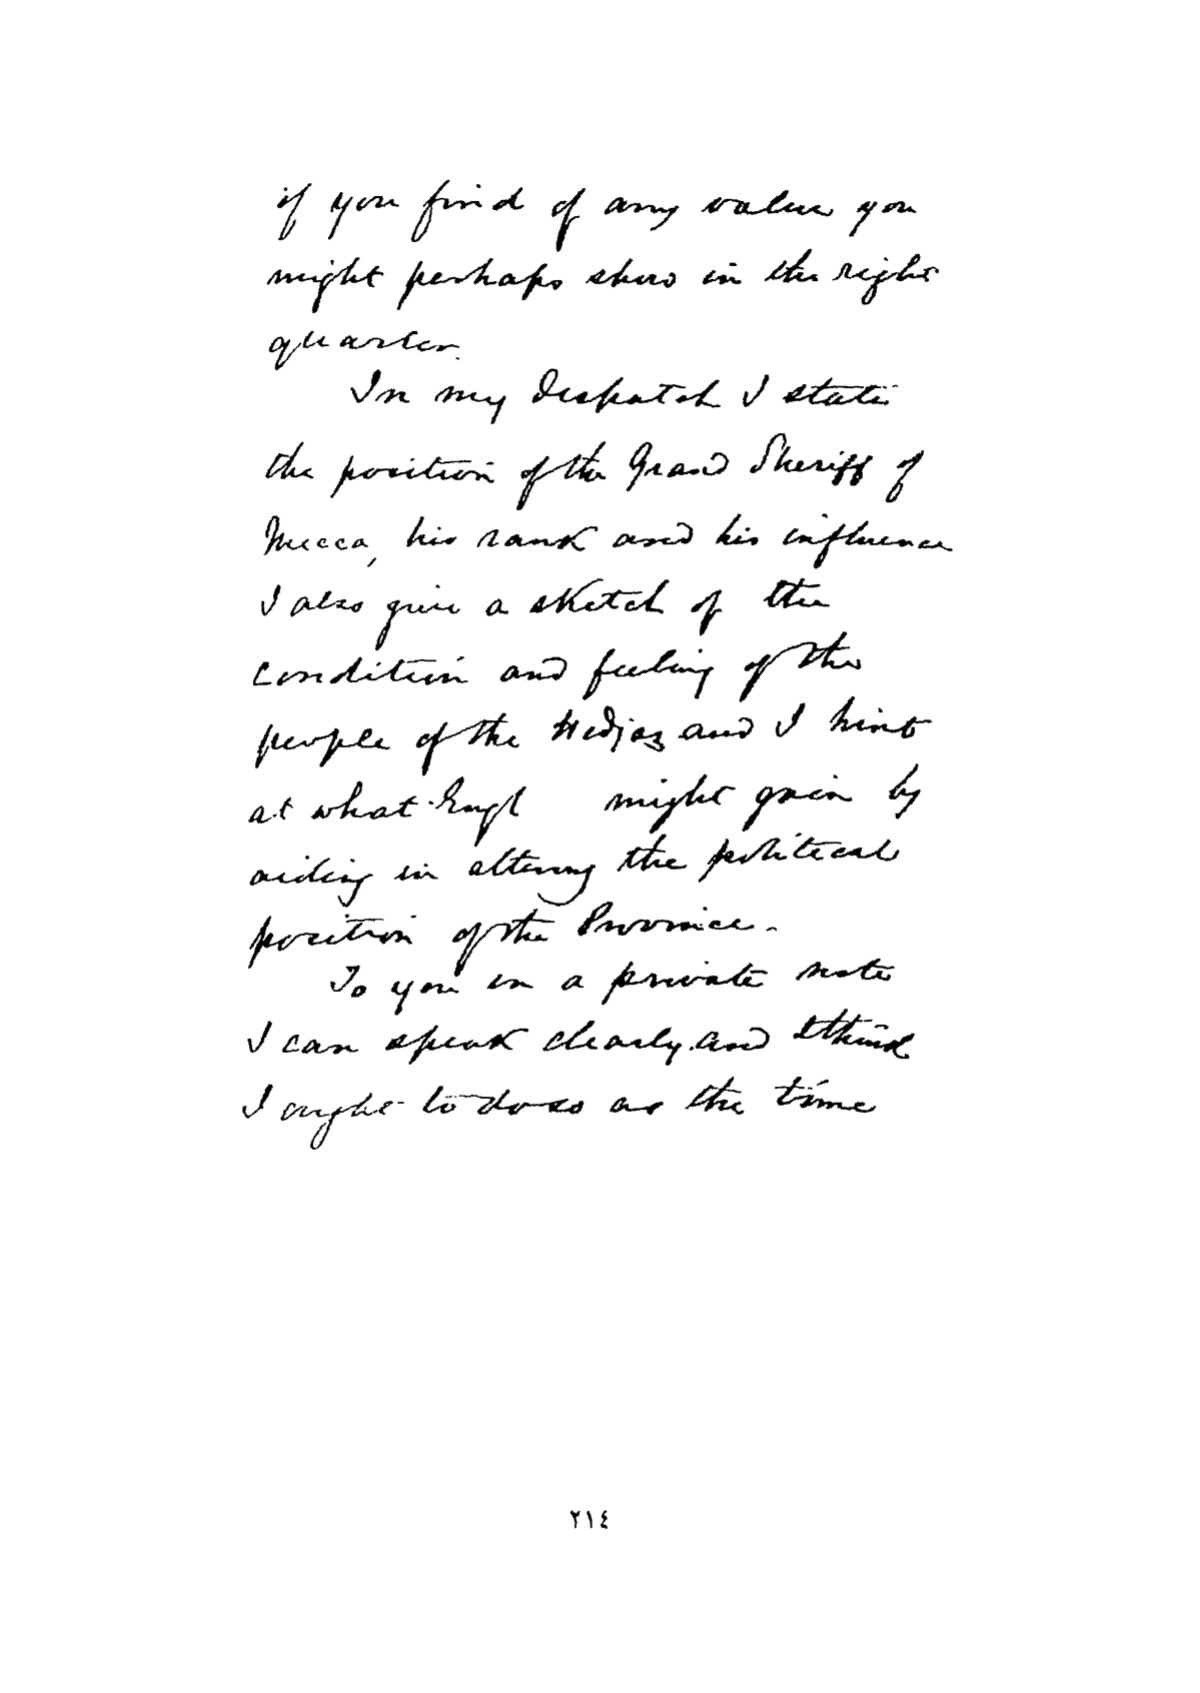 if you find of any value you
might perhaps show in the right
quarter.
In my Despatch I state
the position of the Grand Sheriff of
Mecca, his rank and his influence
I also give a sketch of the
condition and feeling of the
people of the Hedjaz and I hint
at what Engl might gain by
aiding in altering the political
position of the Province.
To you in a private note
I can speak clearly and I think
I ought to do so as the time
٢١٤